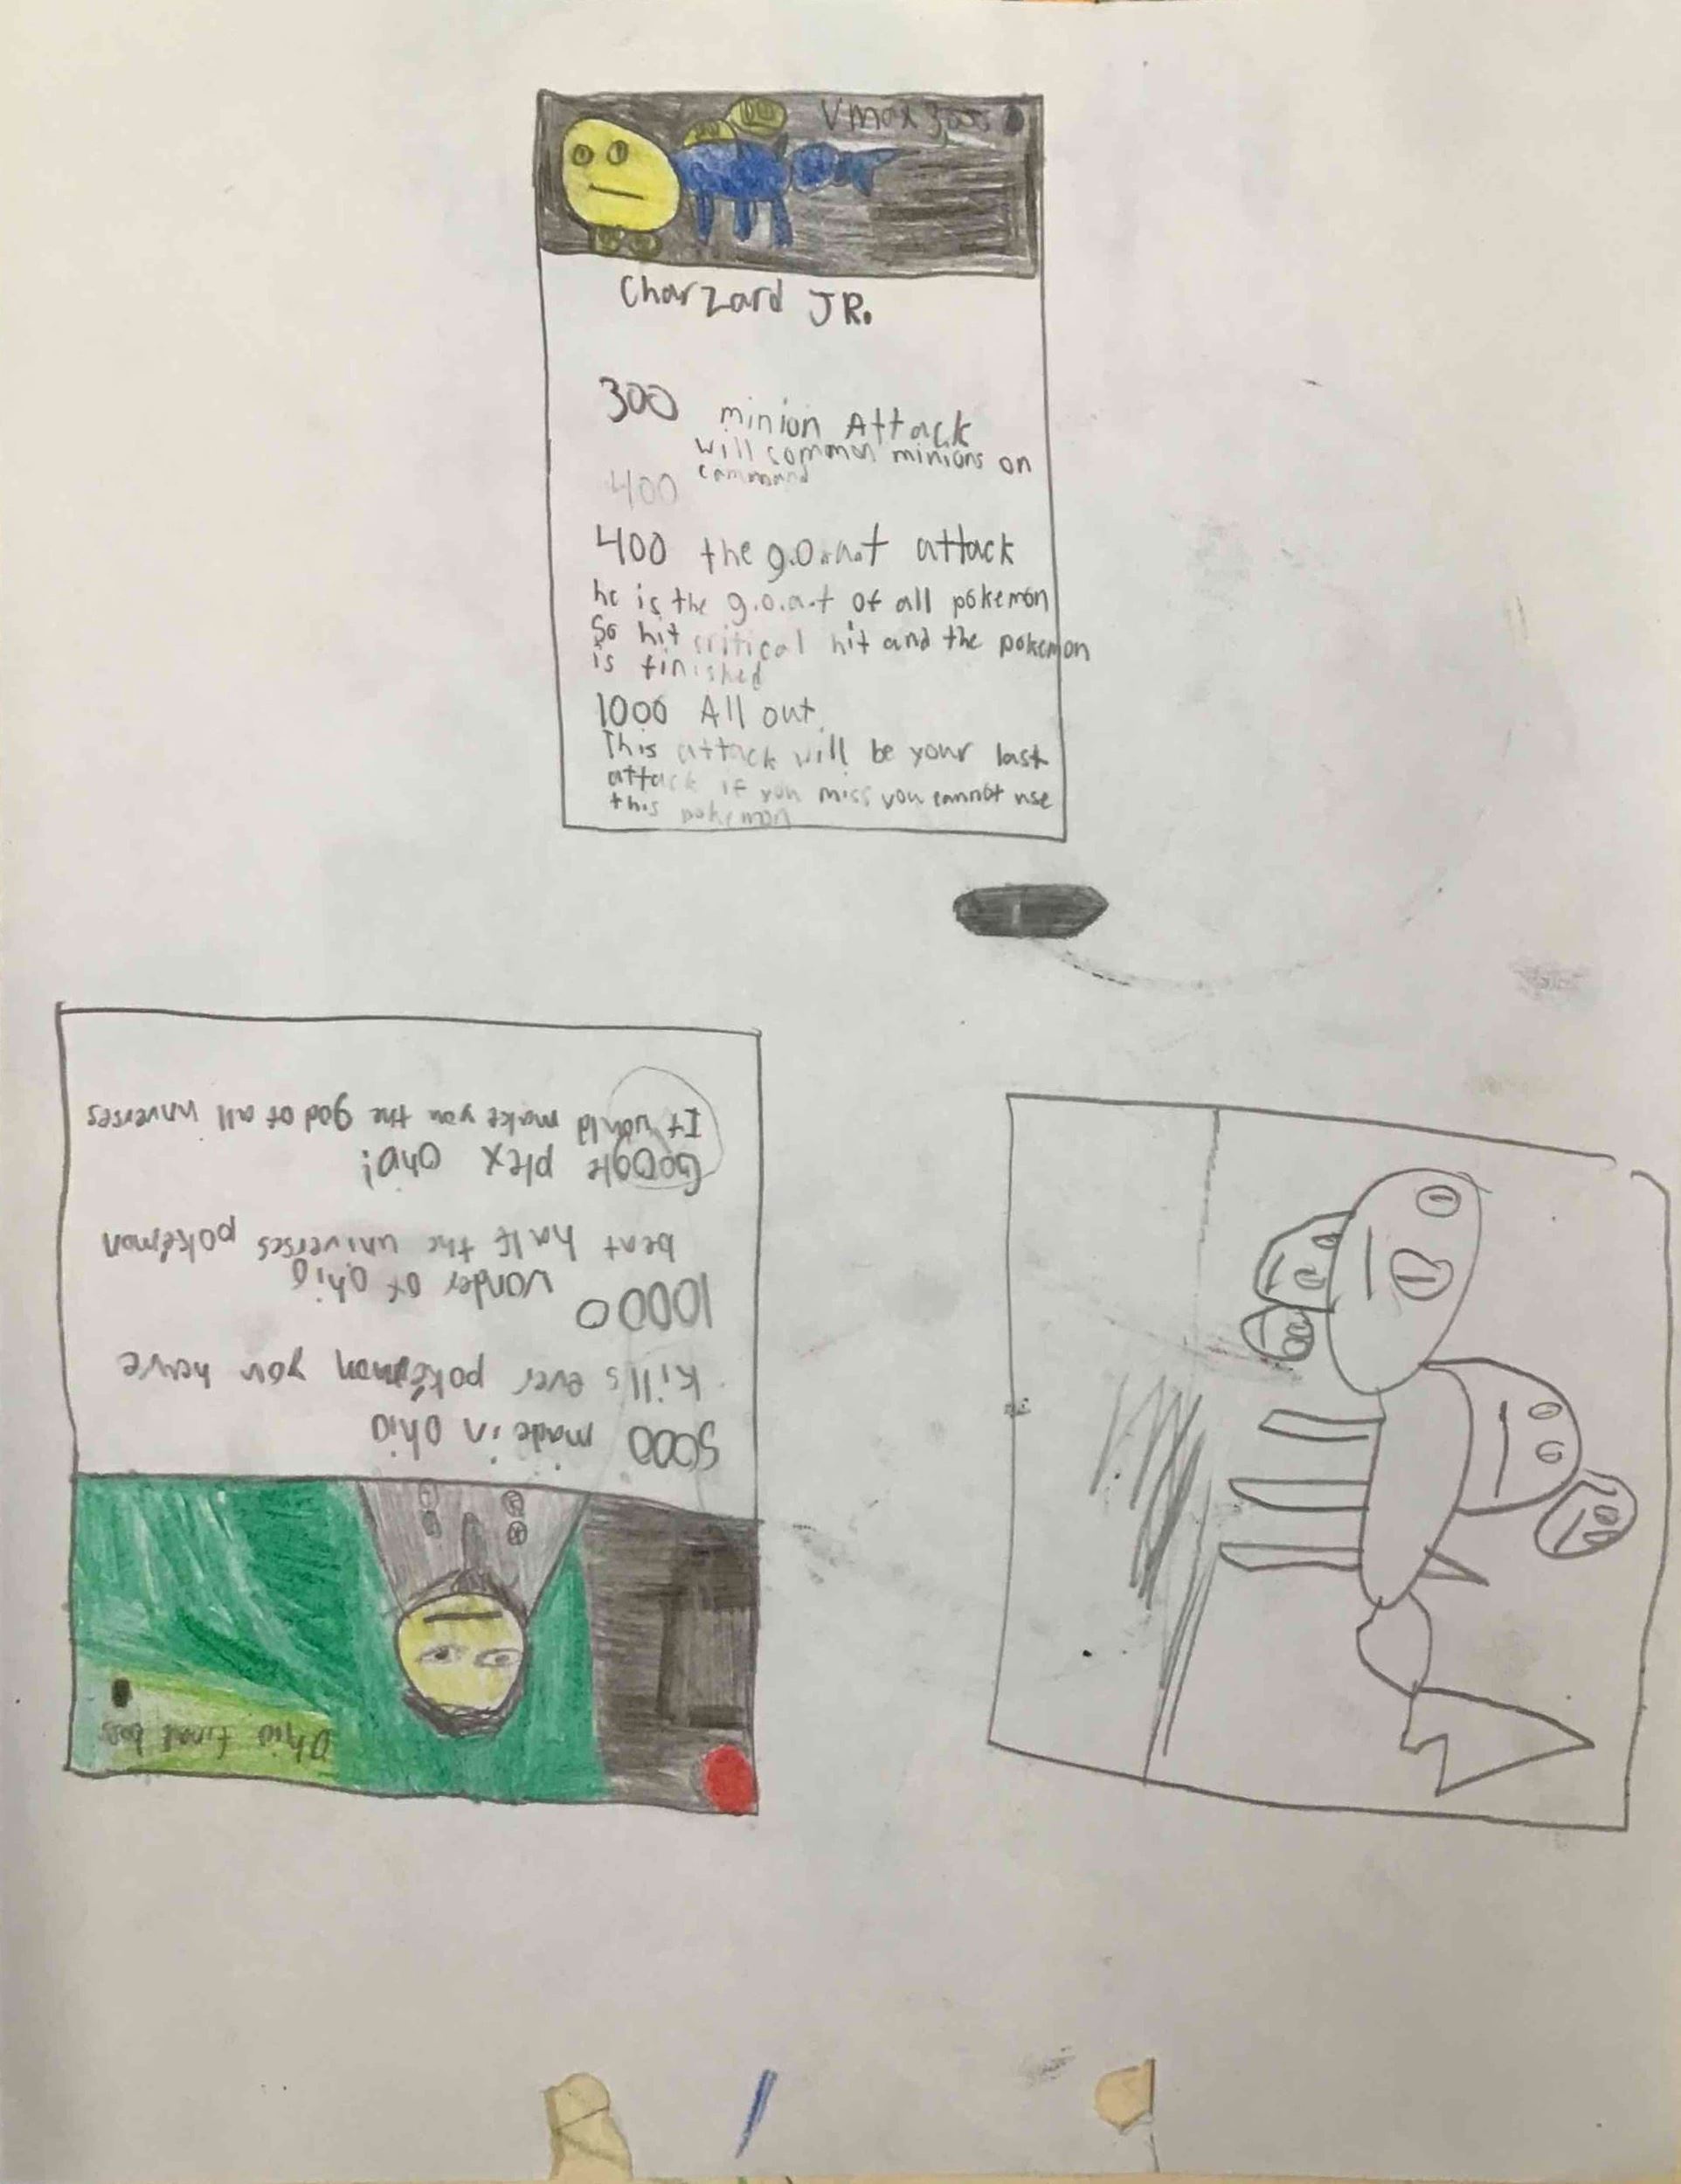 Vmax 3000
Charzard JR.
300 minion Attack
will common minions on
command
400
400 the g.o.a.t attack
he is the g.o.a.t of all pokemon
So hit critical hit and the pokemon
is finished
1000 All out
This attack will be your last
attack if you miss you cannot use
this pokemon
Ohio final boss
5000 made in Ohio
kills ever pokémon you have
10000 wonder of ohio
beat half the universes pokémon
Google plex Ohio!
It would make you the god of all universes